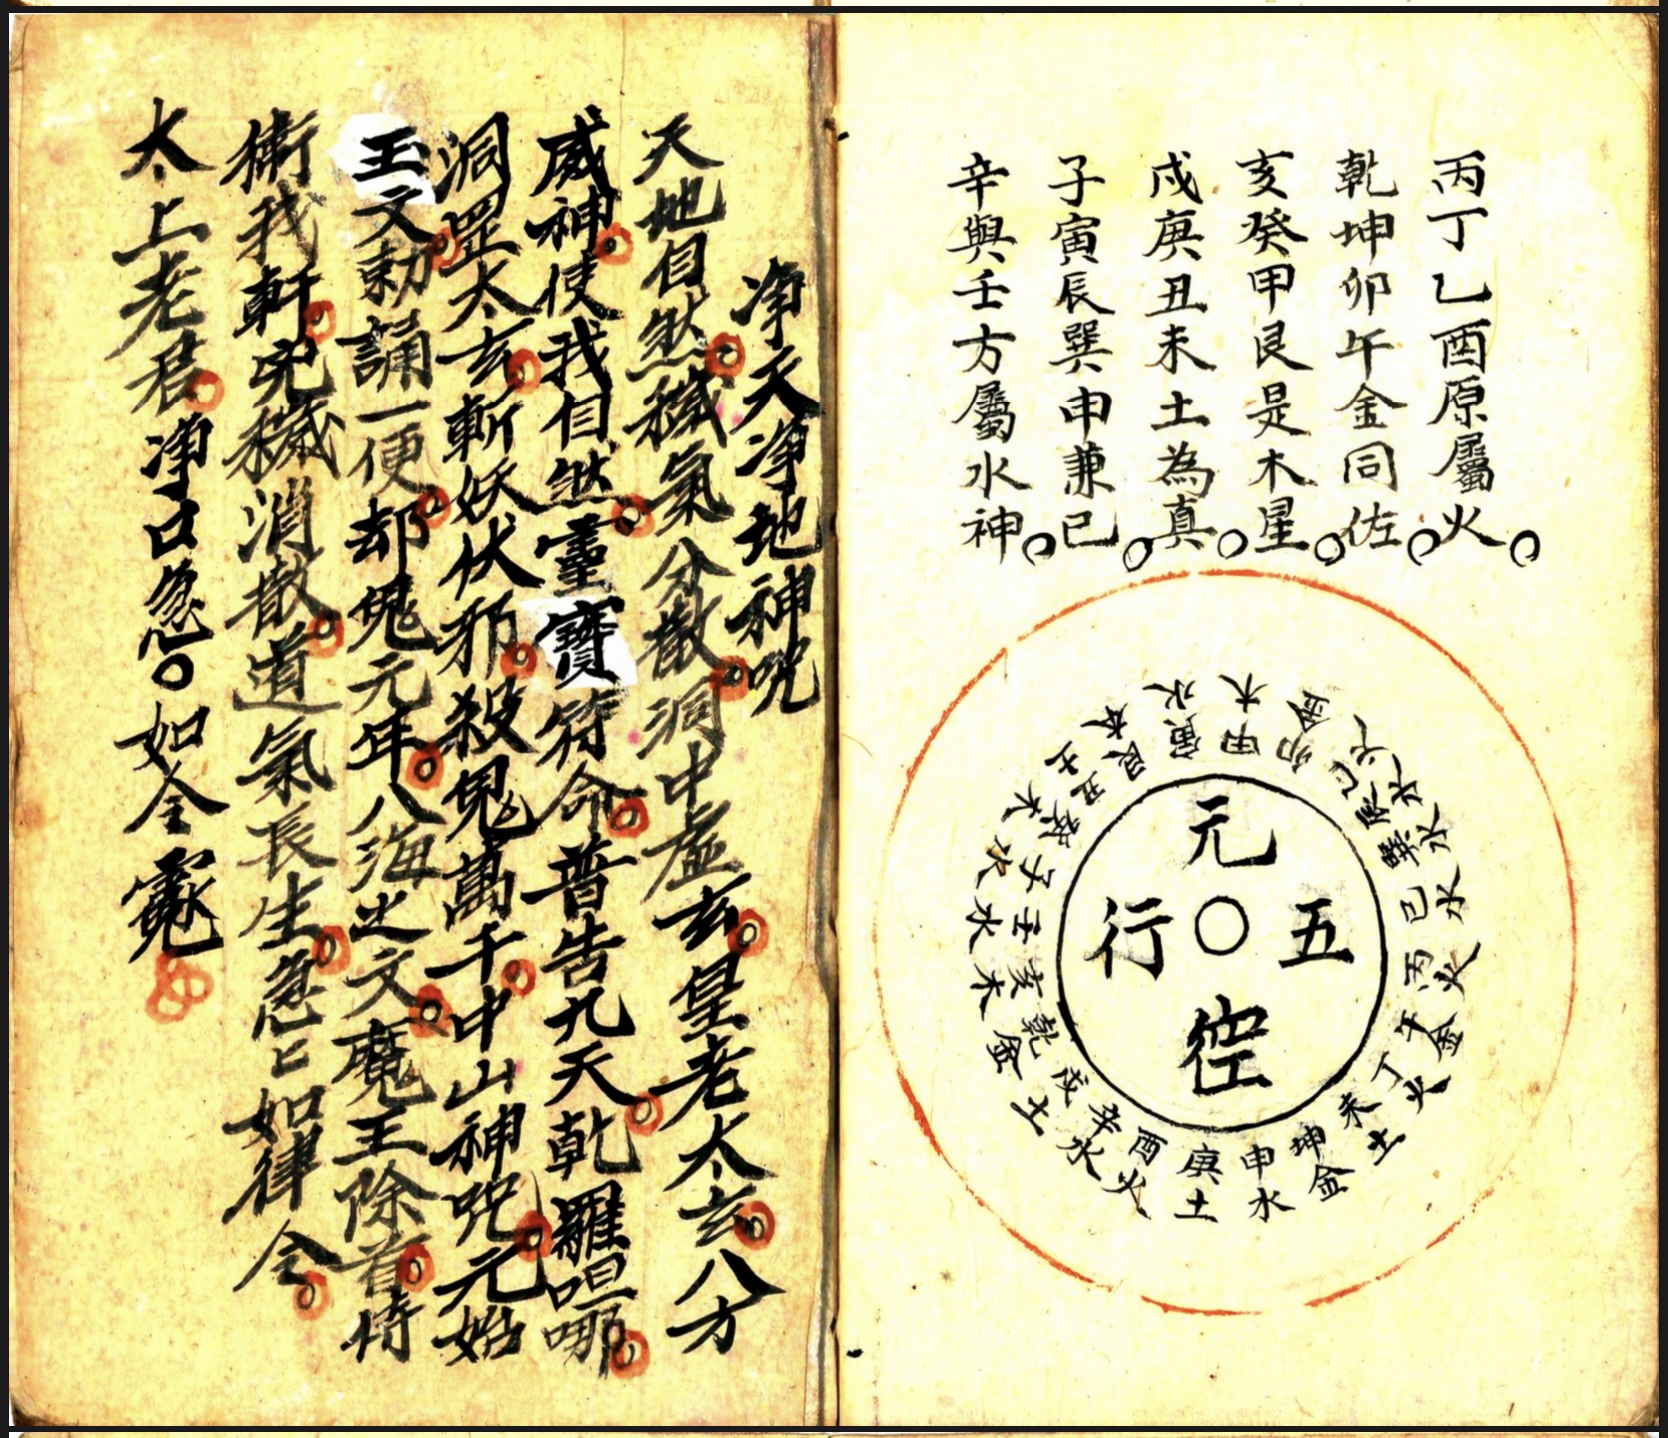 丙丁乙酉原屬火○
乾坤卯午金同佐○
亥癸甲艮是木星○
戌庚丑未土為真○
子寅辰巽申兼巳○
辛與壬方屬水神○
元空五行
甲木
卯金
乙火
辰水
巽水
巳水
丙火
午金
丁火
未土
坤金
申水
庚土
酉火
辛水
戌土
乾金
亥木
壬水
子水
癸木
丑土
艮木
寅水
净天净地神咒
天地自然穢氣分散洞中虛玄皇老太玄八方
威神使我自然靈寶符命普告九天乾羅呾哪
洞罡太玄斬妖伏邪殺鬼萬千中山神咒元始
玉文勅誦一便却鬼元年八海之文魔王除首侍
衛我軒兇穢消散道氣長生急〻如律令
太上老君净口急○如令